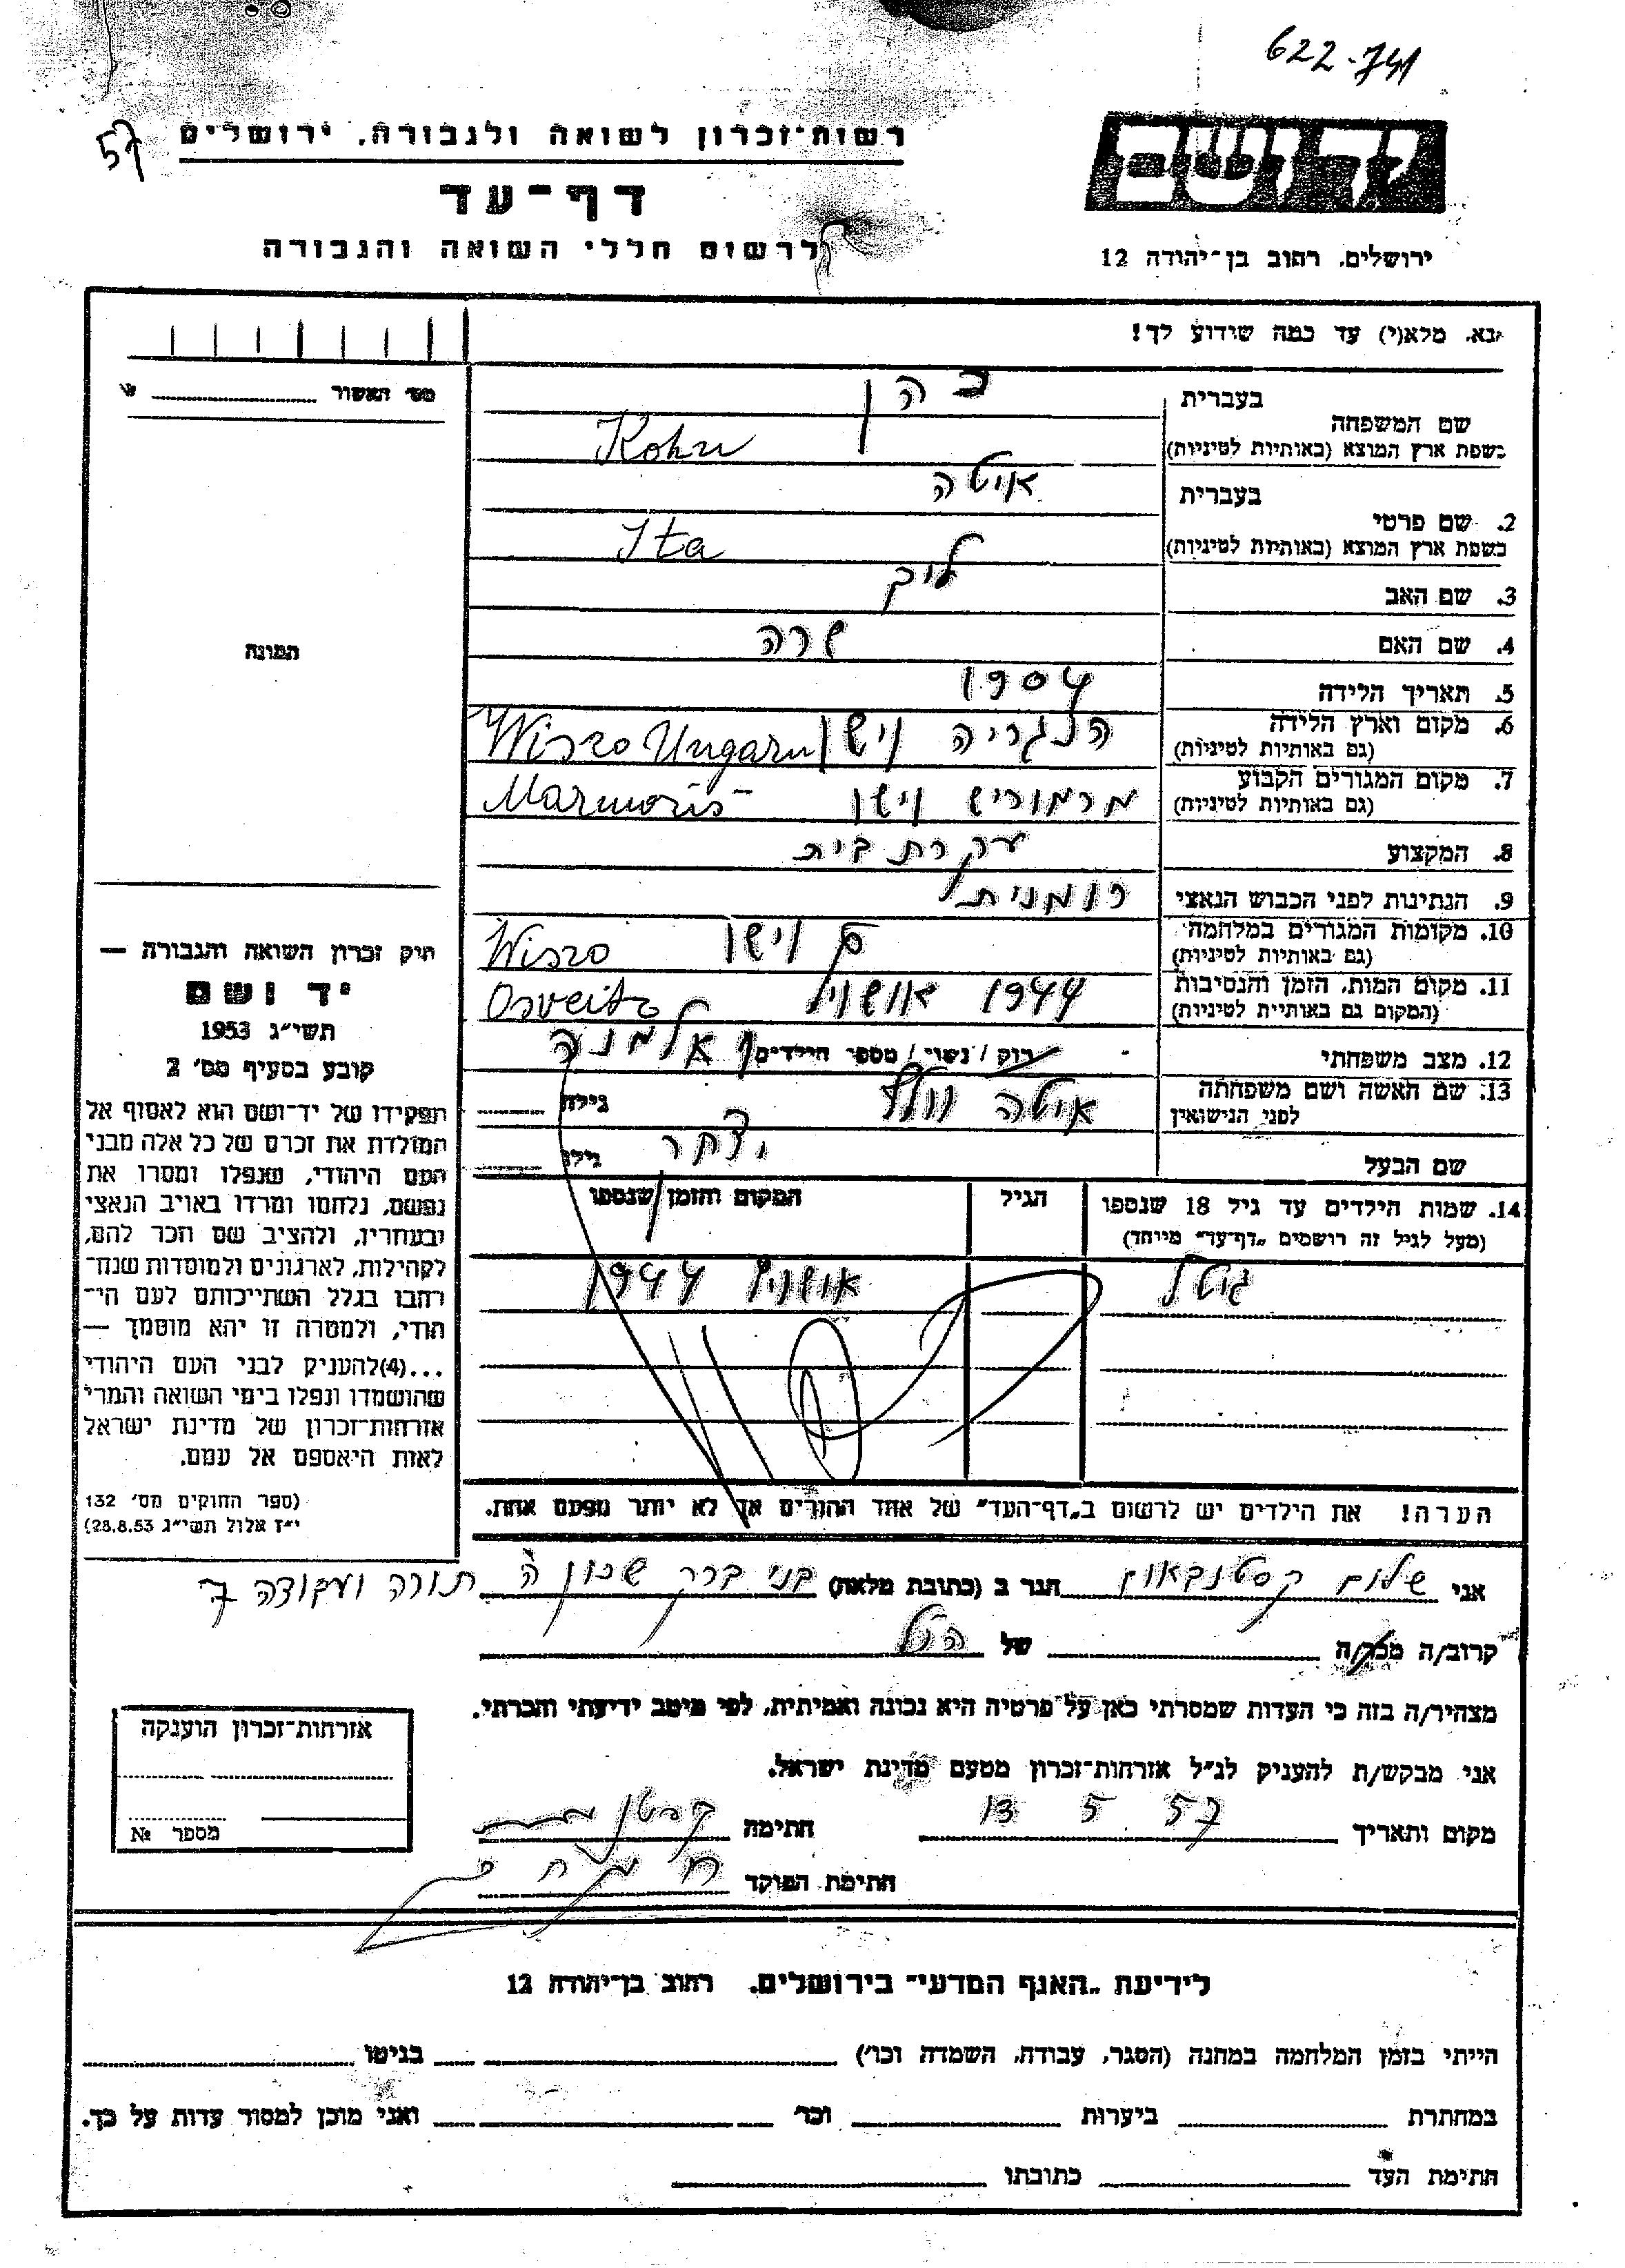 622-741
57
רשות-זכרון לשואה ולגבורה, ירושלים
דף-עד
לרשום חללי השואה והגבורה
ירושלים, רחוב בן-יהודה 12
נא, מלא(י) עד כמה שידוע לך!
מס' האשור
בעברית כהן
שם המשפחה
בשפת ארץ המוצא (באותיות לטיניות) Kohn
בעברית איטה
2. שם פרטי
בשפת ארץ המוצא (באותיות לטיניות) Ita
3. שם האב ליב
4. שם האם שרה
5. תאריך הלידה 1904
6. מקום וארץ הלידה הנגריה וישו Wiszo Ungarn
(גם באותיות לטיניות)
7. מקום המגורים הקבוע מרמוריש וישו Marmoris
(גם באותיות לטיניות)
8. המקצוע עקרת בית
9. הנתינות לפני הכבוש הנאצי רומנית
10. מקומות המגורים במלחמה וישו Wiszo
(גם באותיות לטיניות)
11. מקום המות, הזמן והנסיבות 1944 Osveitz
(המקום גם באותיות לטיניות)
12. מצב משפחתי רוק / נשוי / מספר הילדים אלמנה
13. שם האשה ושם משפחתה איטה גילה
לפני הנישואין
שם הבעל גילו
14. שמות הילדים עד גיל 18 שנספו הגיל המקום והזמן שנספו
(מעל לגיל זה רושמים "דף-עד" מיוחד)
גיטל 1944
הערה! את הילדים יש לרשום ב"דף-העד" של אחד ההורים אך לא יותר מפעם אחת.
תמונה
חיק זכרון השואה והגבורה —
יד ושם
תשי"ג 1953
קובע בסעיף מס' 2
תפקידו של יד-ושם הוא לאסוף אל
המולדת את זכרם של כל אלה מבני
העם היהודי, שנפלו ומסרו את
נפשם, נלחמו ומרדו באויב הנאצי
ובעוזריו, ולהציב שם וזכר להם,
לקהילות, לארגונים ולמוסדות שנח־
רחבו בגלל השתייכותם לעם הי־
הודי, ולמטרה זו יהא מוסמך —
...(4)להעניק לבני העם היהודי
שהושמדו ונפלו בימי השואה והמרי
אזרחות-זכרון של מדינת ישראל
לאות היאספם אל עמם.
(ספר החוקים מס' 132
י"ז אלול תשי"ג 28.8.53)
אני שלום קסטנבאום הגר ב (כתובת מלאה) בני ברק שכון ה תורה ועבודה 7
קרוב/ה מכר/ה של הנ"ל
מצהיר/ה בזה כי העדות שמסרתי כאן על פרטיה היא נכונה ואמיתית, לפי מיטב ידיעתי והכרתי.
אני מבקש/ת להעניק לנ"ל אזרחות-זכרון מטעם מדינת ישראל.
מקום ותאריך 13 5 57 חתימה
חתימת הפוקד
אזרחות-זכרון הוענקה
מספר №
לידיעת "האגף המדעי" בירושלים, רחוב בן-יהודה 12
הייתי בזמן המלחמה במחנה (הסגר, עבודה, השמדה וכו') בגיטו
במחתרת ביערות וכו' ואני מוכן למסור עדות על כך.
חתימת העד כתובתו